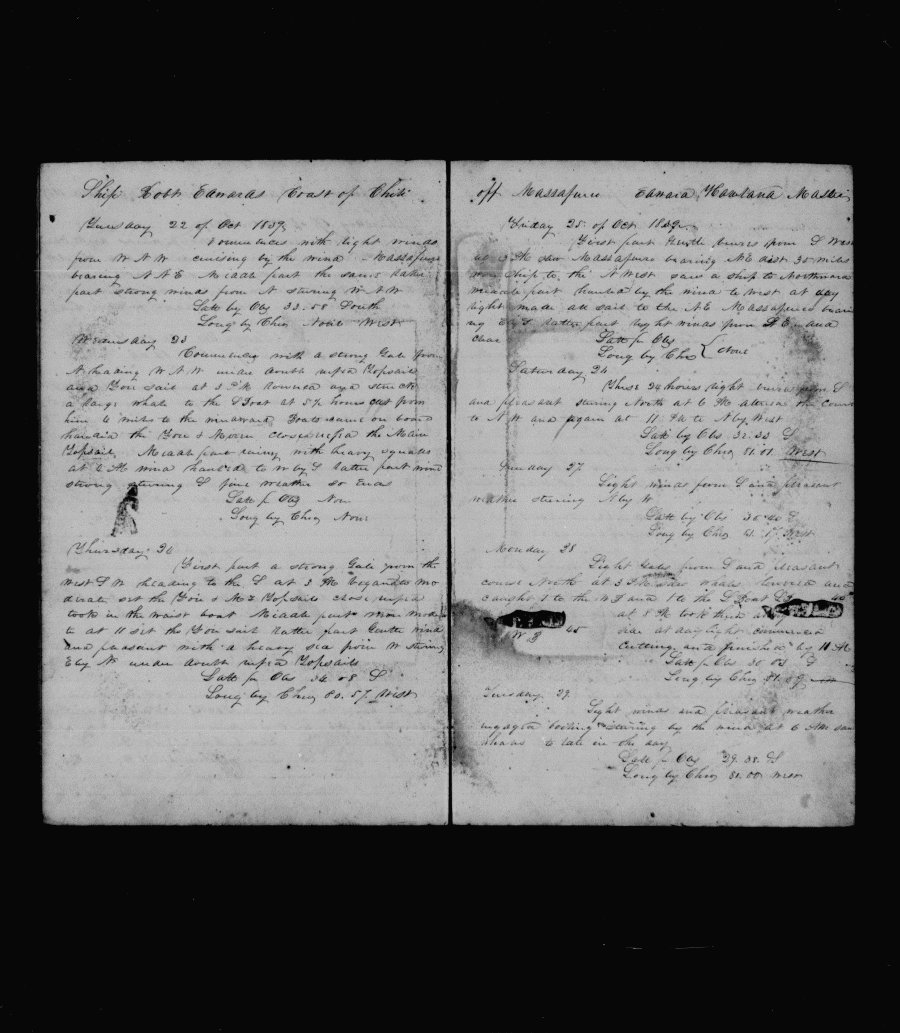 Ship Robt Edwards Coast of Chili
Tuesday 22 of Oct 1839
Commences with light winds
from W N W cruising by the wind Massafuro
bearing N N E Middle part the same latter
part strong winds from N steering W N W
Latt by Obs 33.58 South
Long by Chro None West
Wednesday 23
Commences with a strong Gale from
N heading W N W under double reefed Topsails
and Fore sail at 3 P M lowered and struck
a large whale to the Boat at 5½ hours cut from
him 6 miles to the windward Boats came on board
the Fore & Mizen close reefed the Main
Topsail Middle part rainy with heavy squalls
at 6 AM wind hauled to W by S latter part wind
strong steering S fine weather so Ends
Latt p Obs Non
Long by Chro None
Thursday 24
First part a strong Gale from the
West S W heading to the S at 3 PM began to mo
derate set the Fore & Mz Topsails close reefed
took in the waist boat Middle part more mode
te at 11 set the Fore sail latter part Gentle winds
and pleasant with a heavy sea from W steering
E by N under double reefed Topsails
Latt p Obs 34 08 S
Long by Chro 80.57 West
off Massafuro Edward Howland Master
Friday 25 of Oct 1839
First part Gentle breezes from S West
at 3 PM saw Massafuro bearing NE dist 30 miles
ship to the N West saw a ship to Northward
middle part hauled by the wind to West at day
light made all sail to the N E Massafuro beari
ng latter part light winds from and
clear Latt p Obs
Long by Chro None
Saturday 26
These 24 hours light breezes from S
and pleasant steering North at 6 PM altered the course
to N W and again at 11 to N by West
Latt by Obs 32.33 S
Long by Chro 81.01 West
Sunday 27
Light winds from S and pleasant
weather steering N by W
Latt by Obs 30 40 S
Long by Chro 81.17 West
Monday 28
Light Gales from S and pleasant
course North at 3 PM saw whales lowered and
caught 1 to the W B and 1 to the S Boat
at 8 PM took them
W B 45
at day light commenced
cutting and finished by 11 AM
Latt p Obs 30 03 S
Long by Chro 81.09 West
Tuesday 29
Light winds and pleasant weather
engaged boiling steering by the wind at 6 AM saw
whales to late in the day
Latt p Obs 29.38 S
Long by Chro 81.00 West